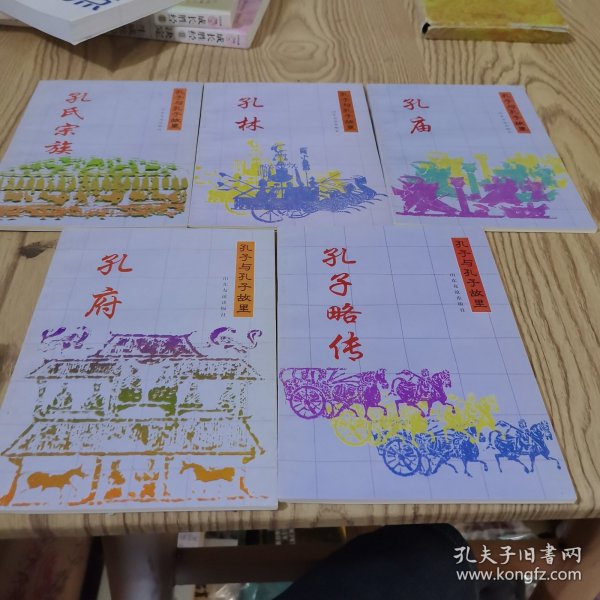 孔氏宗族
孔子与孔子故里
孔林
孔子与孔子故里
孔庙
孔子与孔子故里
孔府
孔子与孔子故里
山东友谊出版社
孔子略传
孔子与孔子故里
山东友谊出版社
孔夫子旧书网
www.kongfz.com